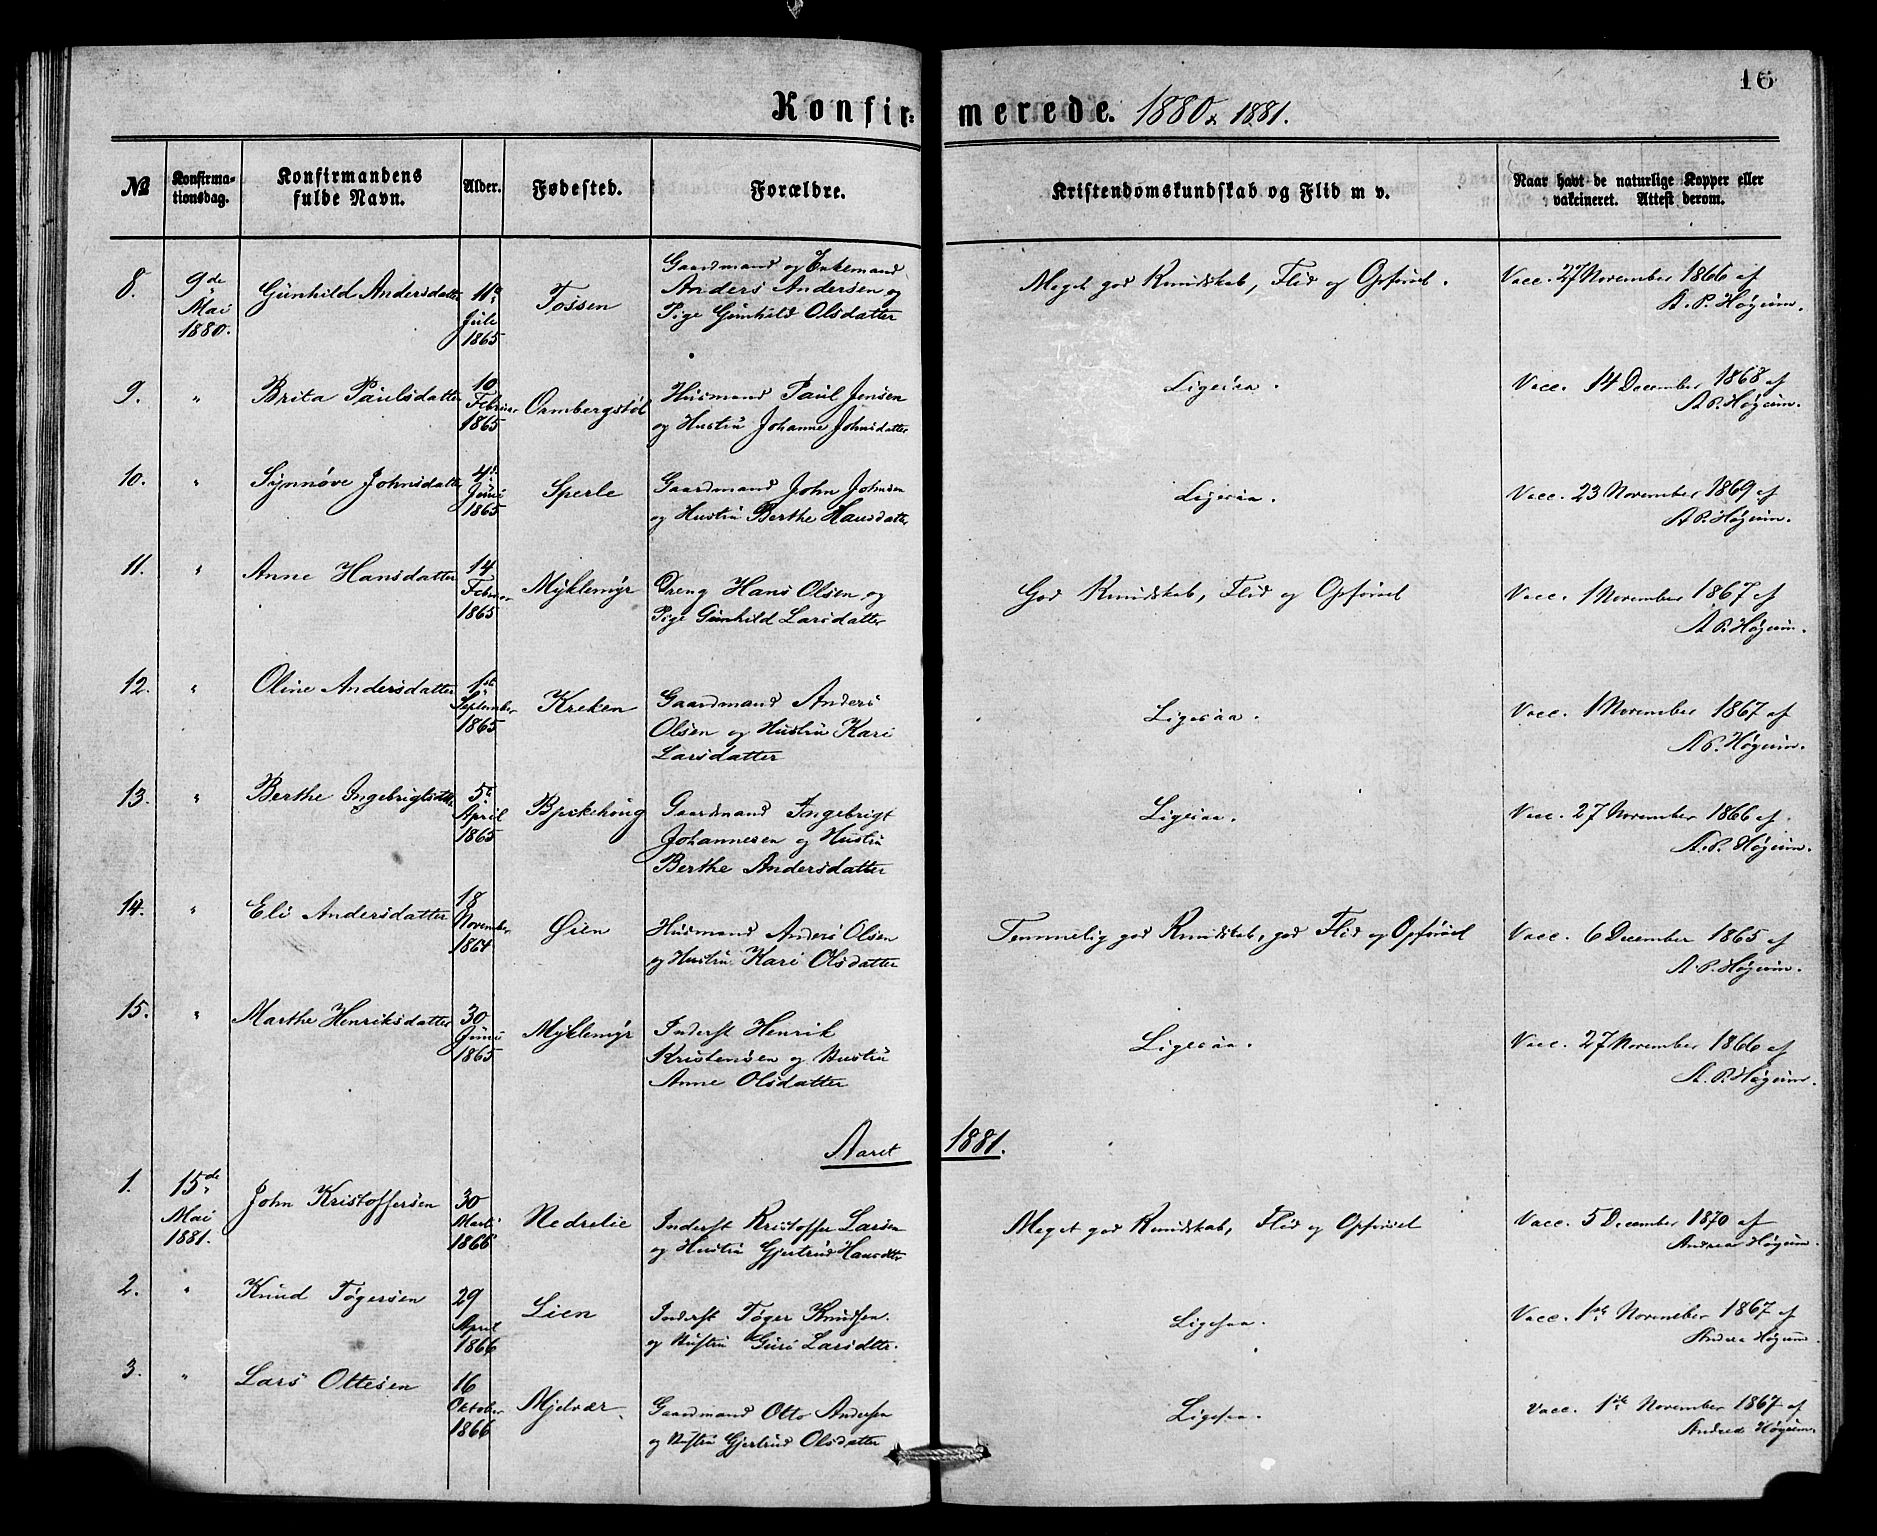 16
Konfirmerede. 1880 & 1881.
№ Konfirmationsdag. Konfirmandens fulde Navn. Alder. Fødested. Forældre. Kristendomskundskab og Flid m v. Naar havt de naturlige Kopper eller vakcineret. Attest derom.
8. 9de Mai 1880. Gunhild Andersdatter 11te Juli 1865 Tossen Gaardmand og Enkemand Anders Andersen og Pige Gunhild Olsdatter Meget god Kundskab, Flid og Opførsel. Vacc. 27 November 1866 af A. P. Høgum.
9. " Brita Paulsdatter 10 Februar 1865 Ormbergstøl Husmand Paul Jensen og Hustru Johanne Johnsdatter Ligesaa. Vacc. 14 December 1868 af A. P. Høgum.
10. " Synnøve Johnsdatter 4de Juni 1865 Sperle Gaardmand John Johnsen og Hustru Berthe Hansdatter Ligesaa. Vacc. 23 November 1869 af A. P. Høgum.
11. " Anne Hansdatter 14 Februar 1865 Myklemyr Dreng Hans Olsen og Pige Gunhild Larsdatter God Kundskab, Flid og Opførsel Vacc. 1 November 1867 af A. P. Høgum.
12. " Oline Andersdatter 1ste September 1865 Kreken Gaardmand Anders Olsen og Hustru Kari Larsdatter Ligesaa. Vacc. 1 November 1867 af A. P. Høgum.
13. " Berthe Ingebrigtsdtr 5te April 1865 Bjrkehoug Gaardmand Ingebrigt Johannesen og Hustru Berthe Andersdatter Ligesaa. Vacc. 27 November 1866 af A. P. Høgum.
14. " Eli Andersdatter 18 November 1864 Øien Husmand Anders Olsen og Hustru Kari Olsdatter Temmelig god Kundskab, god Flid og Opførsel Vacc. 6 December 1865 af A. P. Høgum.
15. " Marthe Henriksdatter 30 Juni 1865 Myklemyr Inderst Henrik Kristensen og Hustru Anne Olsdatter Ligesaa. Vacc. 27 November 1866 af A. P. Høgum.
Aaret 1881.
1. 15de Mai 1881. John Kristoffersen 30 Marts 1866 Nedrelie Inderst Kristoffer Larsen og Hustru Gjertrud Hansdtr Meget god Kundskab, Flid og Opførsel Vacc. 5 December 1870 af Andrea Høgum.
2. " Knud Tøgersen 29 April 1866 Lien Inderst Tøger Knudsen og Hustru Guri Larsdtr. Ligesaa. Vacc. 1ste November 1867 af Andrea Høgum.
3. " Lars Ottesen 16 Oktober 1866 Mjelvær. Gaardmand Otto Andersen og Hustru Gjertrud Olsdatter Ligesaa. Vacc. 1ste November 1867 af Andrea Høgum.